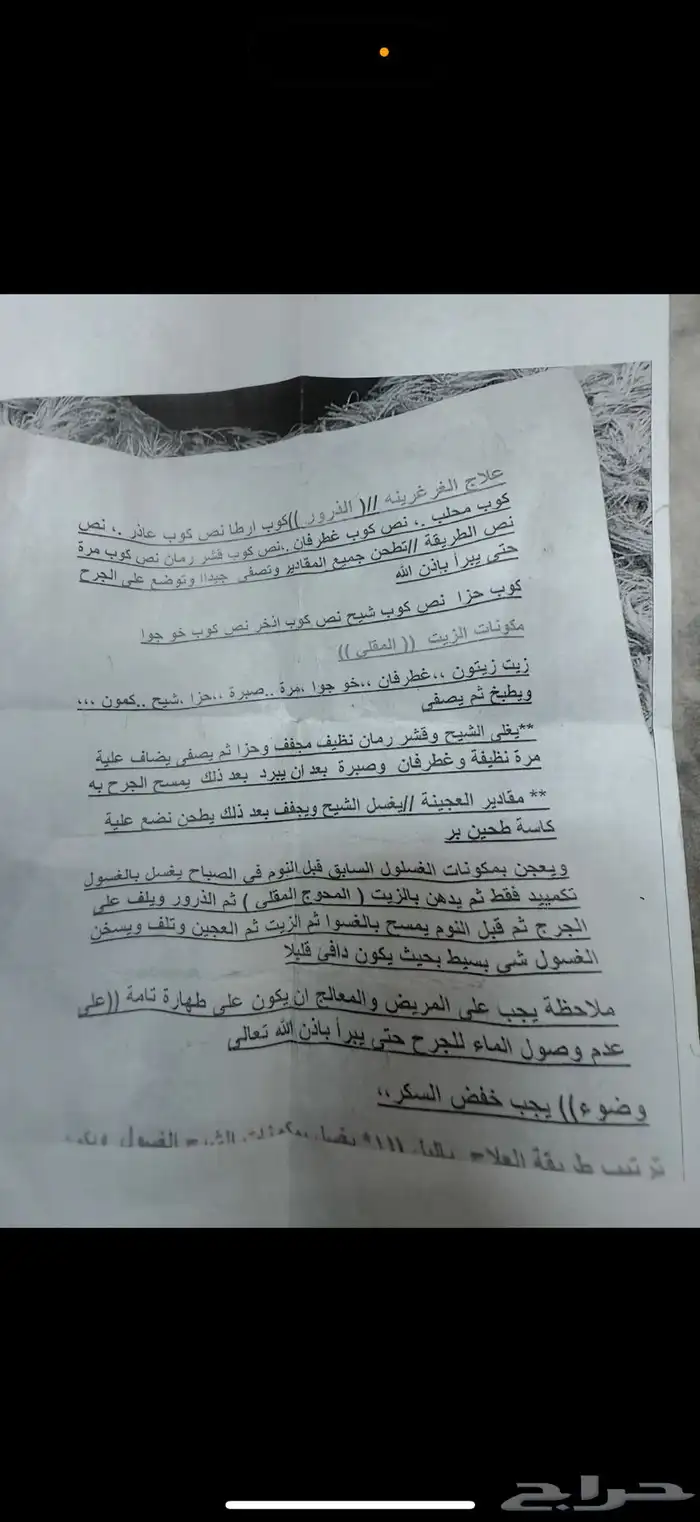 علاج الغرغرينه //( الذرور ))كوب ارطا نص كوب عاذر .، نص
كوب محلب .، نص كوب غطرفان .،نص كوب قشر رمان نص كوب مرة
نص الطريقة //تطحن جميع المقادير وتصفى جيداا وتوضع على الجرح
حتى يبرأ بإذن الله
كوب حزا نص كوب شيح نص كوب اذخر نص كوب خو جوا
مكونات الزيت (( المقلي ))
زيت زيتون ،،غطرفان ،،خو جوا ،مرة ..صبرة ،،حزا ،شيح ..كمون ،،،
ويطبخ ثم يصفى
**يغلى الشيح وقشر رمان نظيف مجفف وحزا ثم يصفى يضاف علية
مرة نظيفة وغطرفان وصبرة بعد ان يبرد بعد ذلك يمسح الجرح به
** مقادير العجينة //يغسل الشيح ويجفف بعد ذلك يطحن نضع علية
كاسة طحين بر
ويعجن بمكونات الغسلول السابق قبل النوم في الصباح يغسل بالغسول
تكمييد فقط ثم يدهن بالزيت ( المحوج المقلي ) ثم الذرور ويلف على
الجرج ثم قبل النوم يمسح بالغسوا ثم الزيت ثم العجين وتلف ويسخن
الغسول شي بسيط بحيث يكون دافى قليلا
ملاحظة يجب على المريض والمعالج ان يكون على طهارة تامة ((على
عدم وصول الماء للجرح حتى يبرأ باذن الله تعالى
وضوء)) يجب خفض السكر،،
ترتيب طريقة العلاج
حراج